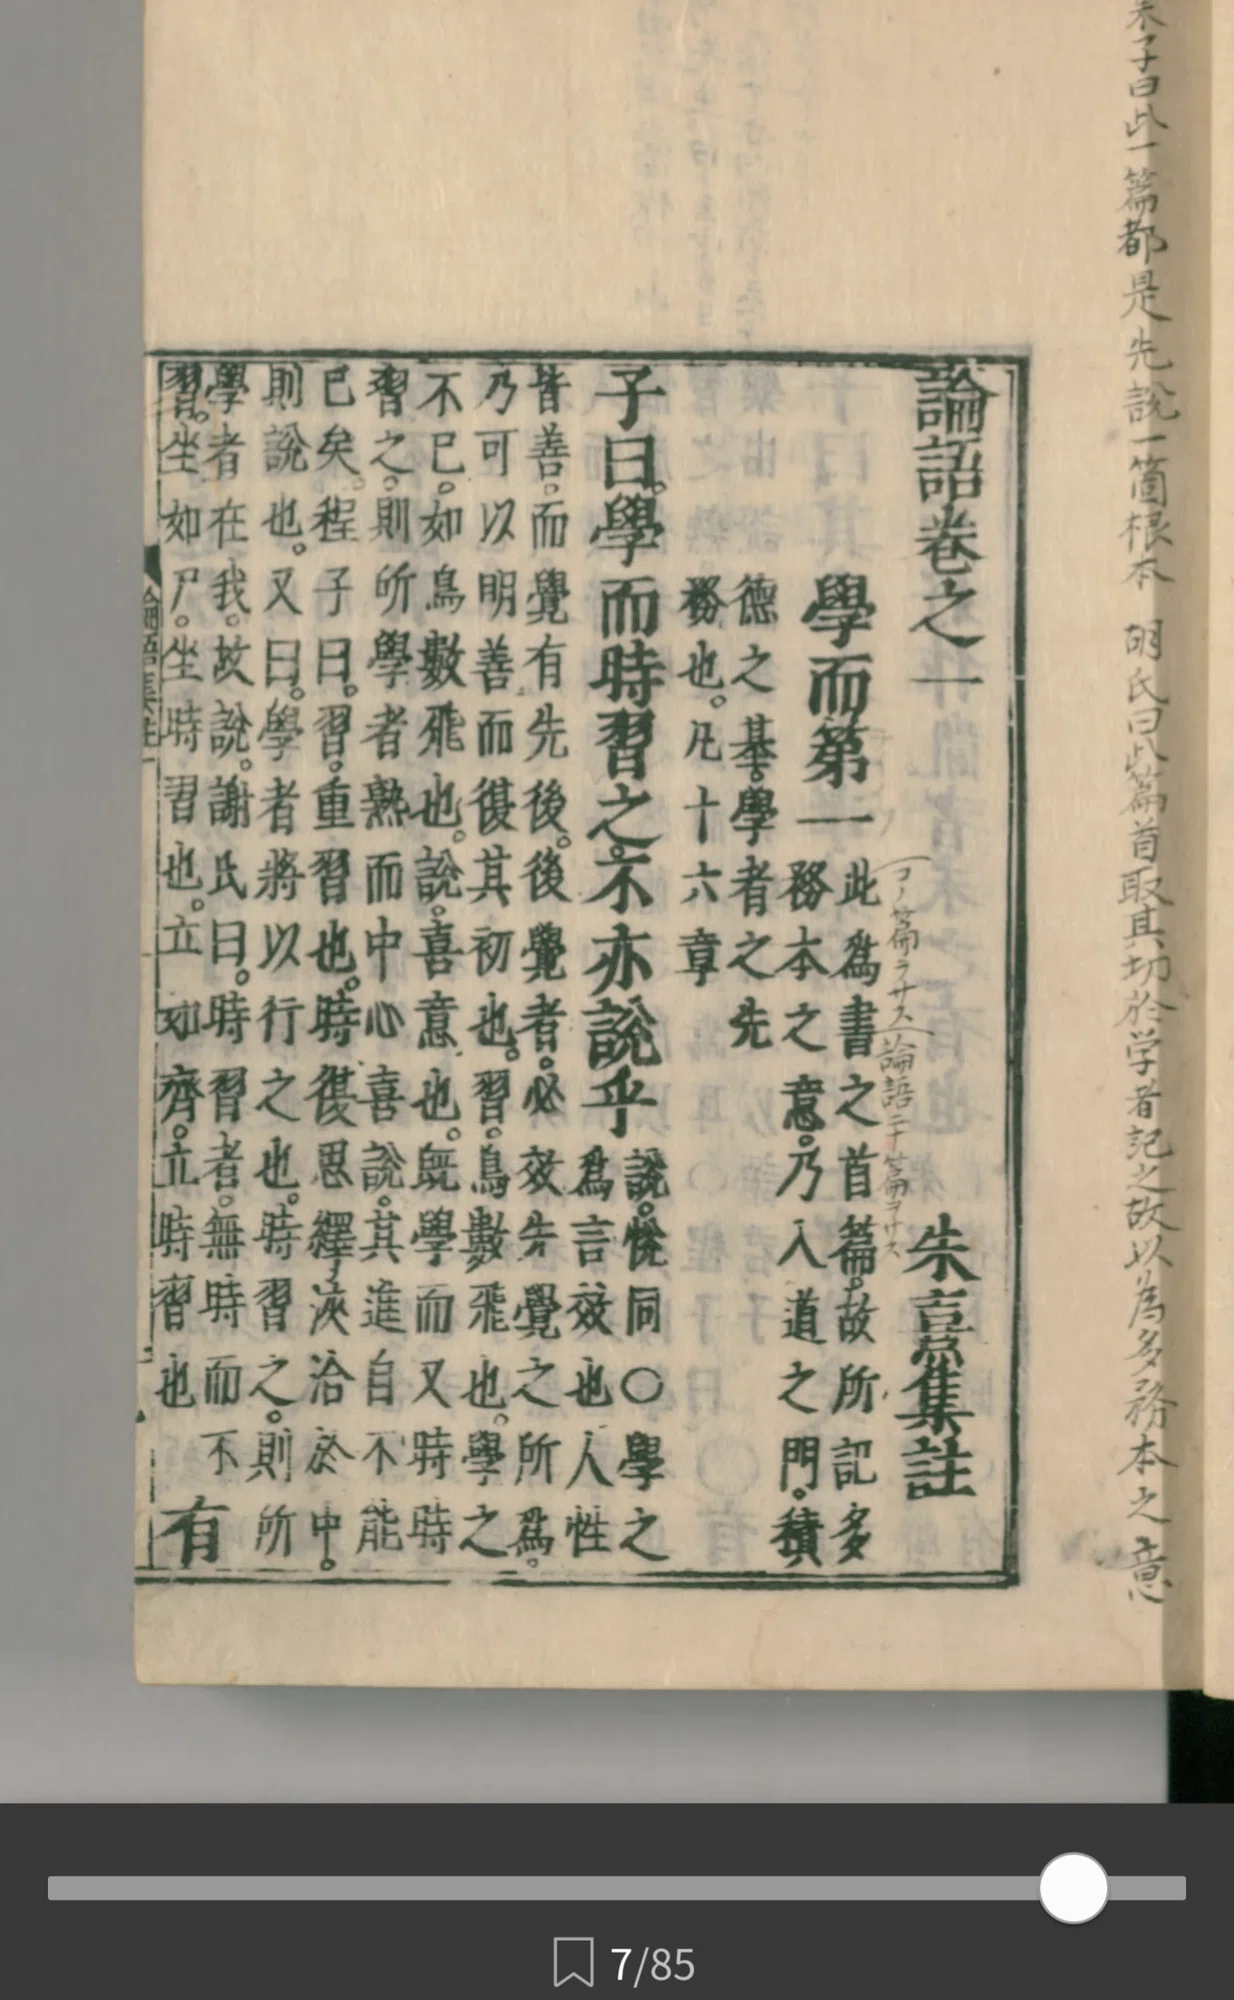 朱子曰此一篇都是先說一箇根本 胡氏曰此篇首取其切於学者記之故以為多務本之意
論語卷之一
朱熹集註
學而第一
此爲書之首篇。故所記多
務本之意。乃入道之門。積
コノ篇ヲサス
論語二十篇ヲサス
德之基。學者之先
務也。凡十六章
子曰。學而時習之。不亦說乎
說。悅同○學之
爲言效也人性
皆善。而覺有先後。後覺者。必效先覺之所爲。
乃可以明善而復其初也。習。鳥數飛也。學之
不已。如鳥數飛也。說。喜意也。旣學而又時時
習之。則所學者熟而中心喜說。其進自不能
已矣。程子曰。習。重習也。時復思繹浹洽於中。
則說也。又曰。學者將以行之也。時習之。則所
學者在我。故說。謝氏曰。時習者。無時而不
習。坐如尸。坐時習也。立如齊。立時習也
有
論語集註
7/85